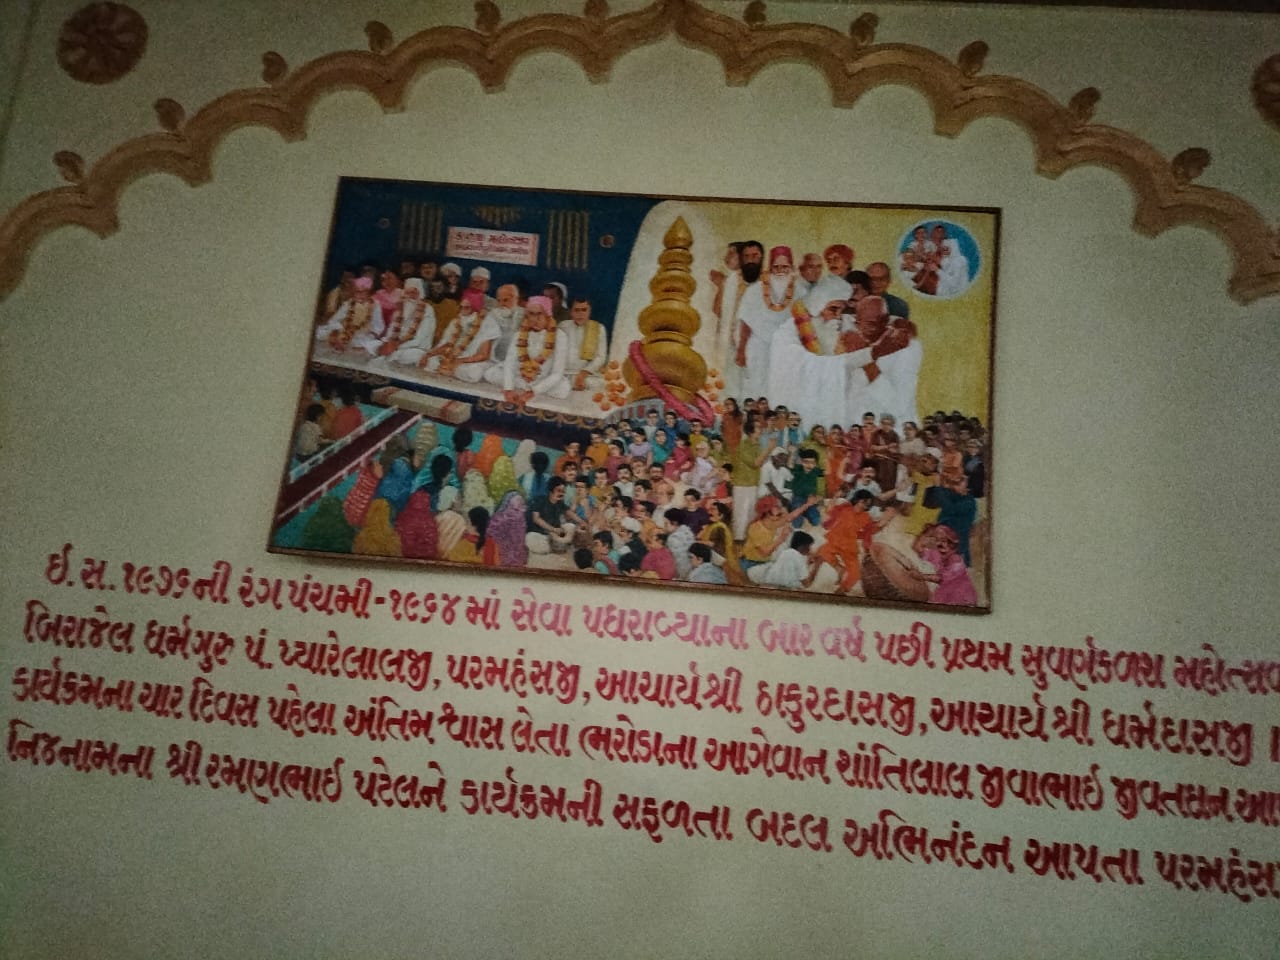 ઇ.સ.૧૯૭૬ની રંગપંચમી-૧૯૬૪માં સેવા પધરાવ્યાના બાર વર્ષ પછી પ્રથમ સુવર્ણકળશ મહોત્સવ
બિરાજેલ ધર્મગુરુ પં. પ્યારેલાલજી, પરમહંસજી, આચાર્યશ્રી ઠાકુરદાસજી, આચાર્ય શ્રી ધર્મદાસજી
કાર્યક્રમના ચાર દિવસ પહેલા અંતિમ શ્વાસ લેતા ભરોડાના આગેવાન શાંતિલાલ જીવાભાઇ જીવતદાન
નિજનામના શ્રી રમાણભાઇ પટેલને કાર્યક્રમની સફળતા બદલ અભિનંદન આપતા પરમહંસ